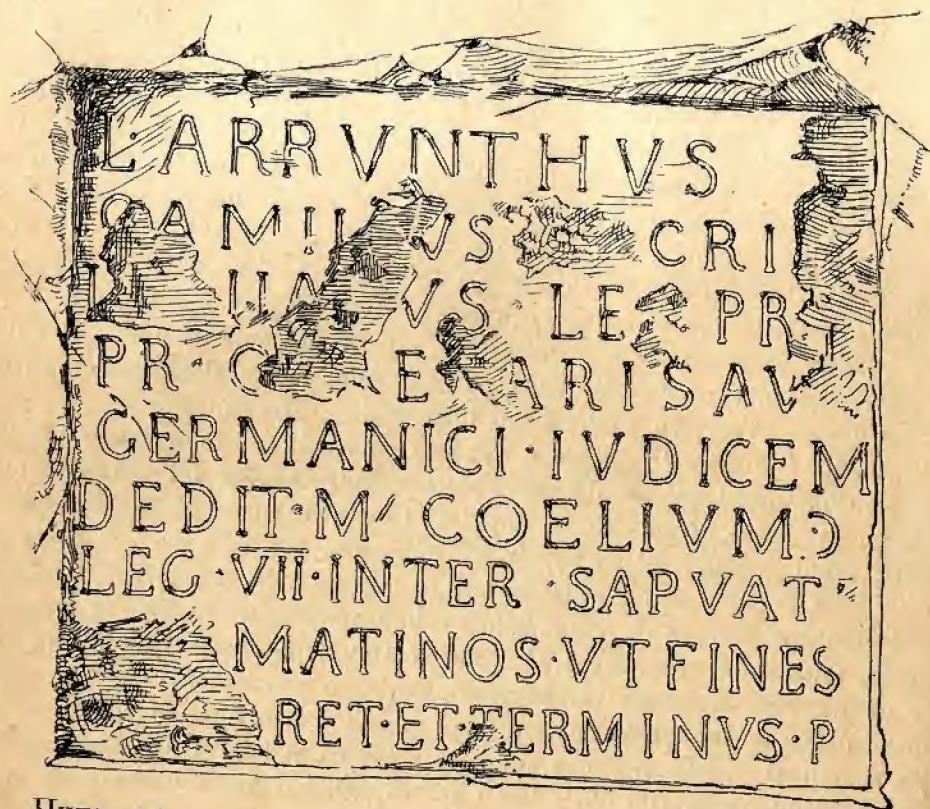 L·ARRVNTHVS
CAMILLVS SCRI
VS LEG PR
PR·C E ARIS AV
GERMANICI·IVDICEM
DEDIT·M' COELIVM·Ɔ
LEG·VII·INTER·SAPVAT
MATINOS·VT FINES
RET·ET·TERMINVS·P